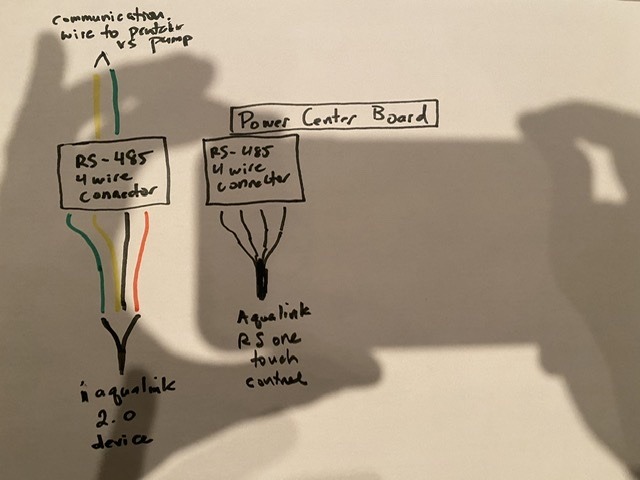 communication
wire to pentair
vs pump
Power Center Board
RS-485
4 wire
connector
RS-485
4 wire
connector
Aqualink
RS one
touch
control
iaqualink
2.0
device